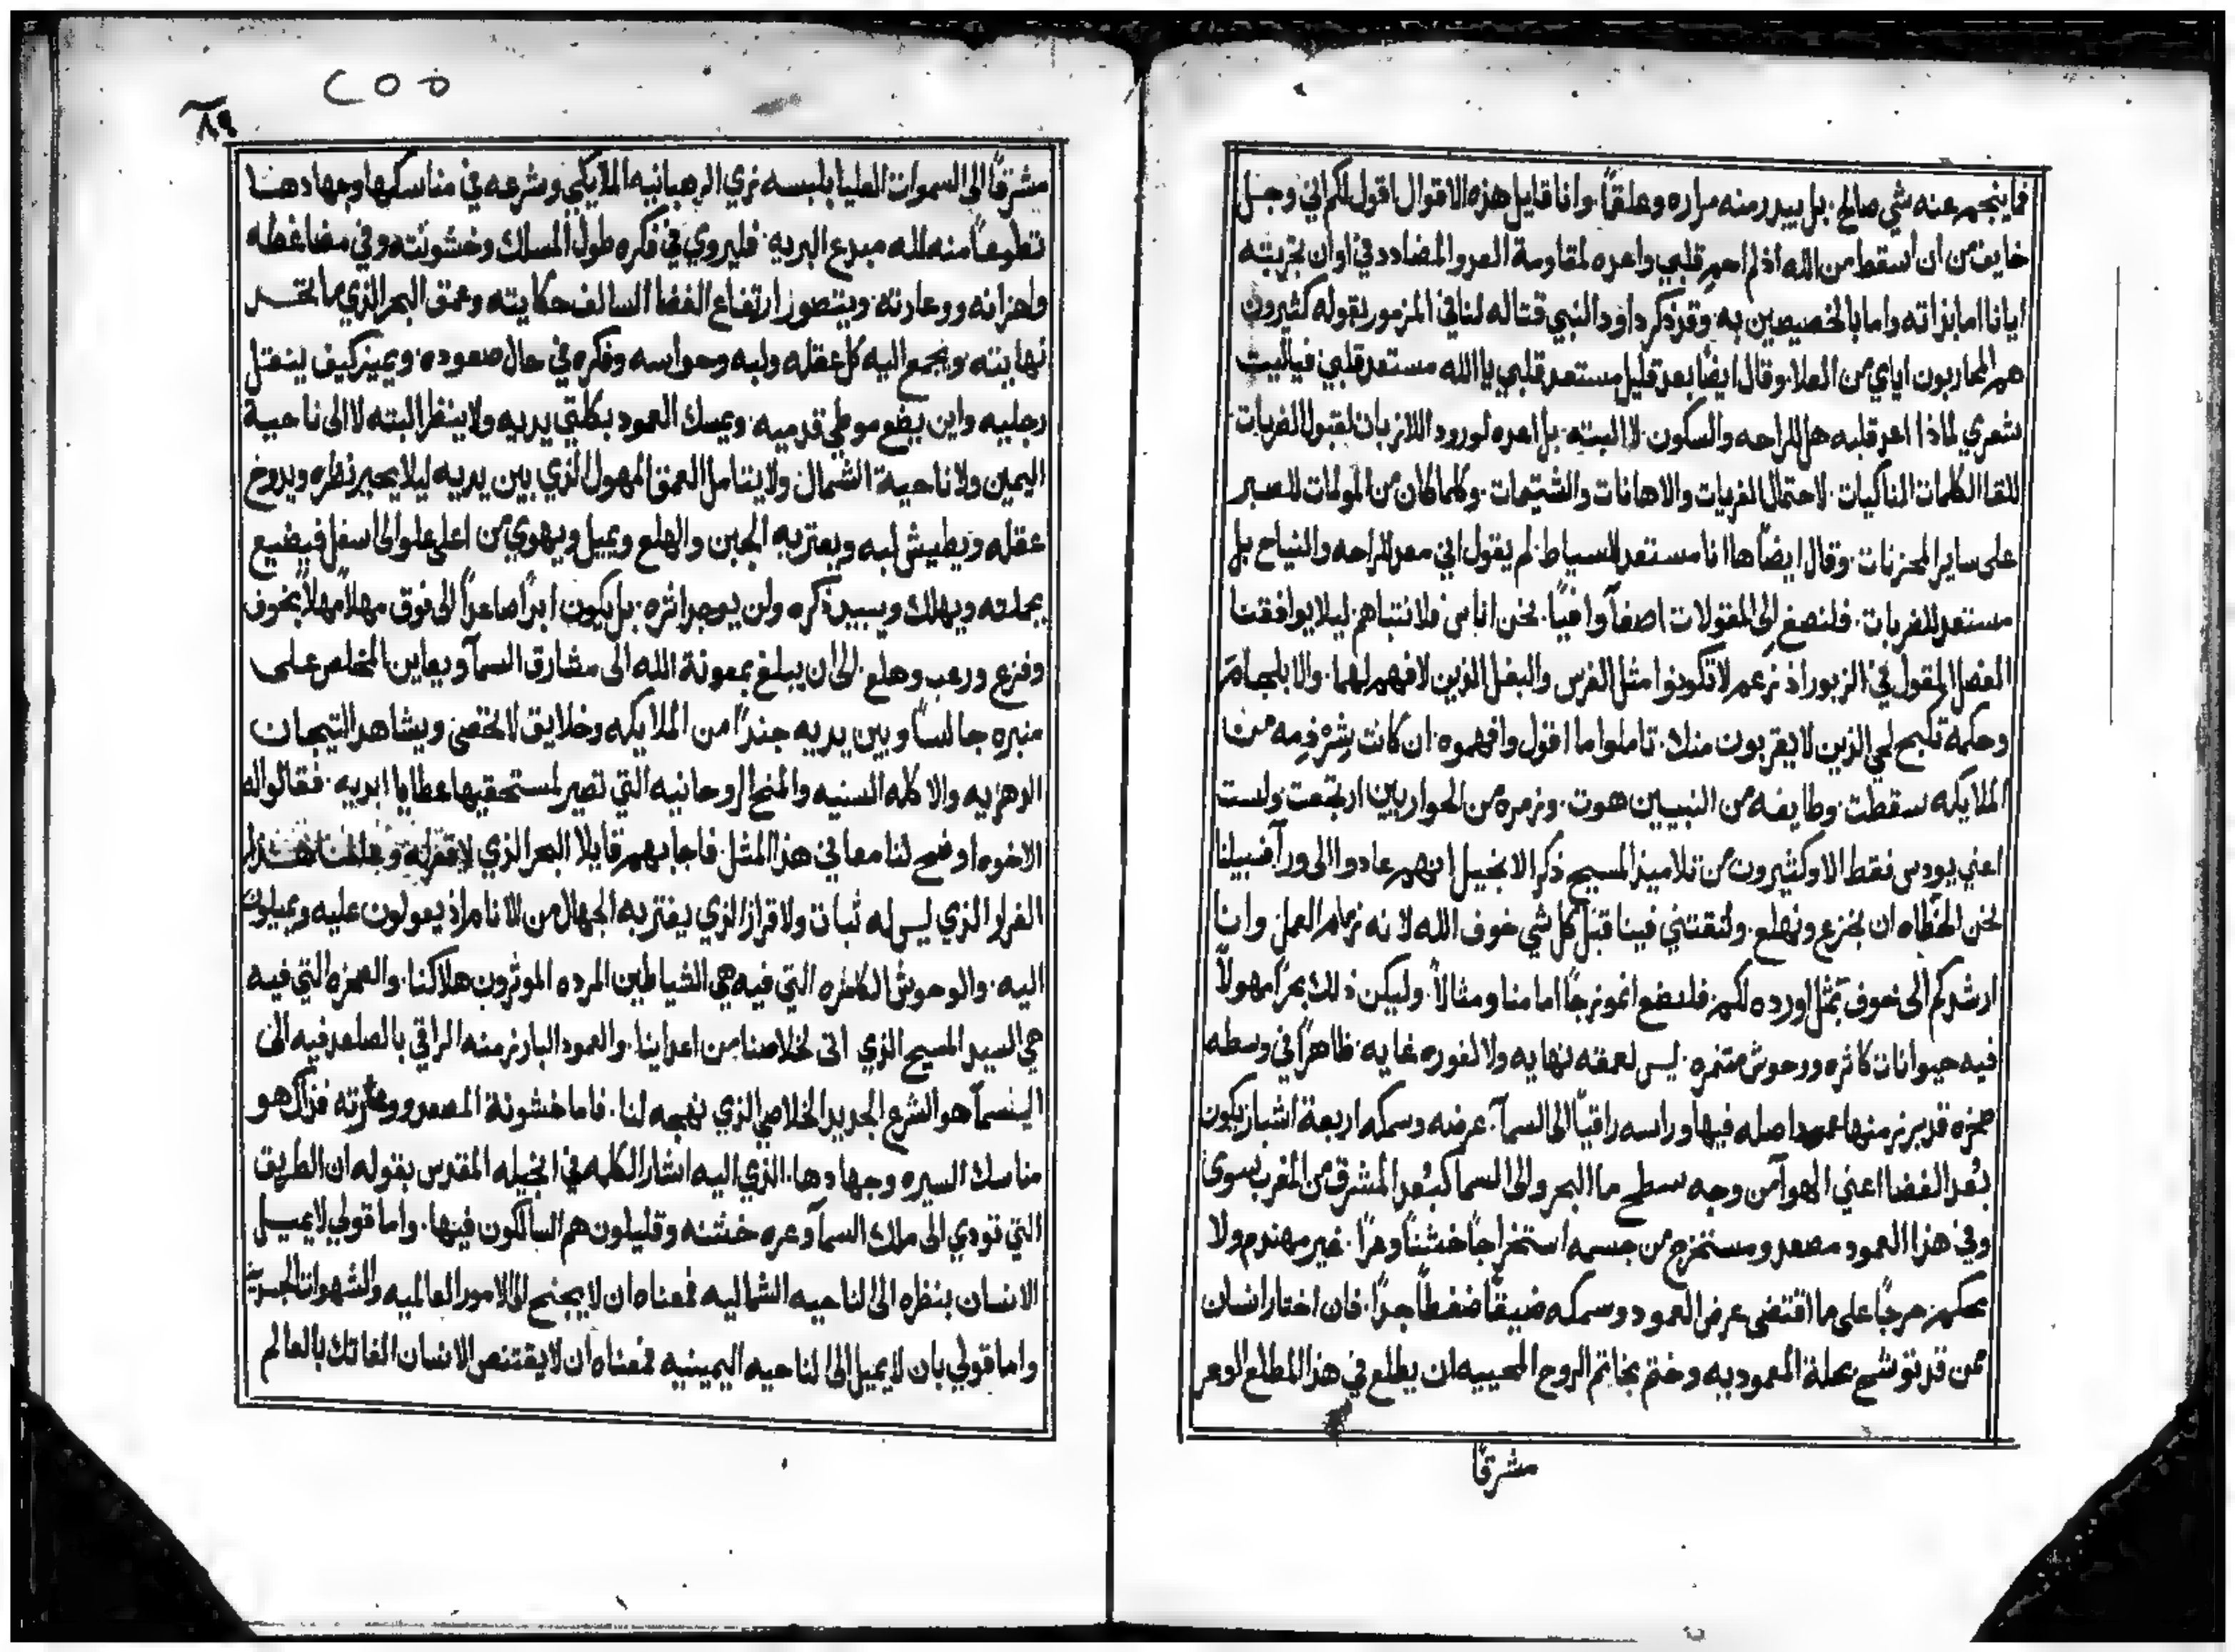 فما ينجم عنه شي صالح. بل يبدر منه مراره وعلقمًا. وانا قايل هذه الاقوال اقول لكم اني وجل
خايف من ان اسقط من الله اذ لم احم قلبي واعده لمقاومة العدو المضادد في اوان تجربته
ايانا اما بذاته واما بالخصيصين به. وقد ذكر داود النبي قتاله لنا في المزمور بقوله كثيرون
هم المحاربون اياي من العلا. وقال ايضًا بعد قليل مستعد قلبي يا الله مستعد قلبي فياليت
شعري لماذا اعد قلبه هل للراحه والسكون. لا البته. بل اعده لورود اللازبات لقبول الضربات.
للقا الكلمات المناكيات. لاحتمال الفريات والاهانات والشتيمات. وكلما كان من المولمات للصبر
على ساير المحزنات. وقال ايضًا ها انا مستعد للسياط. لم يقول اني معد للراحه والنياح بل
مستعد للضربات. فلنصغ الى المقولات اصغآ وافيًا. نحن اناس فلا نتباهم. ليلا يوافقنا
الفصل المقول في الزبور اذ نزعم لا تكونوا مثل الفرس والبغل الذين لا فهم لهما. والا بلجام
وحكمه تكبح لحي الذين لا يقربون منك. تاملوا ما اقول وافهموه. ان كانت شرذمه من
الملايكه سقطت. وطايفه من النبيين هوت. وزمره من الحواريين ارتجعت ولست
اعني يودس فقط الا وكثيرون من تلاميذ المسيح ذكر الانجيل انهم عادوا الى ورآ. فسبيلنا
نحن الخطاه ان نجزع ونهلع. ولنقتني فينا قبل كل شي خوف الله لانه زمام العمل وانا
ارشدكم الى خوف بمثل اورده لكم. فلنضع انموزجًا امامنا ومثالاً. وليكن ذلك بحرًا مهولاً
فيه حيوانات كاثره ووحوش متنمره. ليس لعمقه نهايه ولا لغوره غايه. ظاهرًا في وسطه
صخره قد برز منها عمود اصله فيها وراسه راقيًا الى السمآ. عرضه وسمكه اربعة اشبار يكون
بُعد الفضا اعني الهوآ من وجه سطح ما البحر والى السما كبُعد المشرق من المغرب سوى
وفي هذا العمود مصعد ومستخرج من جسمه استخراجًا خشنًا وعرًا. غير مهندم ولا
محكم. حرجًا على ما اقتضى عرض العمود وسمكه ضيقًا ضغطًا جدًا. فان اختار انسان
ممن قد توشح بحلة المعموديه وختم بخاتم الروح المحييه ان يطلع في هذا المطلع الوعر
مشرقًا
٢٥٥
٨٩
مشرقًا الى السموات العليا بلبسه زي الرهبانيه الملايكي وشرعه في مناسكها وجهادها
تطوعًا منه لله مبدع البريه. فليروي في فكره طول المسلك وخشونته وفي مضاغطه
واحزانه ووعارته. ويتصور ارتفاع الفضا السالف حكايته وعمق البحر الذي ما تحد
نهايته ويجمع اليه كل عقله ولبه وحواسه وفكره في حال صعوده. ويميز كيف ينقل
رجليه واين يضع موطي قدميه. ويمسك العمود بكلتي يديه ولا ينظر البته لا الى ناحية
اليمين ولا ناحية الشمال ولا يتامل العمق المهول الذي بين يديه ليلا يحير نظره ويدوخ
عقله ويطيش لبه ويعتريه الجبن والهلع ويميل ويهوي من اعلى علو الى اسفل فيضيع
بجملته ويهلك ويبيد ذكره ولن يوجد اثره. بل يكون ابدًا صاعدًا الى فوق مهلاً مهلاً بخوف
وفزع ورعب وهلع. الى ان يبلغ بمعونة الله الى مشارق السمآ ويعاين المخلص على
منبره جالسًا وبين يديه جندًا من الملايكه وخلايق لا تحصى ويشاهد التيجات
الدهريه والاكله السنيه والمنح الروحانيه التي تصير لمستحقيها عطايا ابديه. فقالوا له
الاخوه اوضح لنا معاني هذا المثل. فاجابهم قايلا البحر الذي لا قعر له وعالمنا هذا
الغرار الذي ليس له ثبات ولا قرار الذي يغتر به الجهال من الانام اذ يعولون عليه ويميلون
اليه. والوحوش الكاسره التي فيه هي الشياطين المرده الموثرون هلاكنا. والصخره التي فيه
هي السيد المسيح الذي اتى لخلاصنا من اعداينا. والعمود البارز منه الراقي بالصاعد فيه الى
السمآ هو الشرع الجديد الخلاصي الذي نهجه لنا. فاما خشونة المصعد ووعارته فذاك هو
مناسك السيره وجهادها. الذي اليه اشار الكلمه في انجيله المقدس بقوله ان الطريق
التي تودي الى ملك السمآ وعره خشنه وقليلون هم السالكون فيها. واما قولي لا يميل
الانسان بنظره الى الناحيه الشماليه فمعناه ان لا يجنح الى الامور العالميه والشهوات الجسدانيه
واما قولي بان لا يميل الى الناحيه اليمينيه فمعناه ان لا يقتنص الانسان الفاتك بالعالم